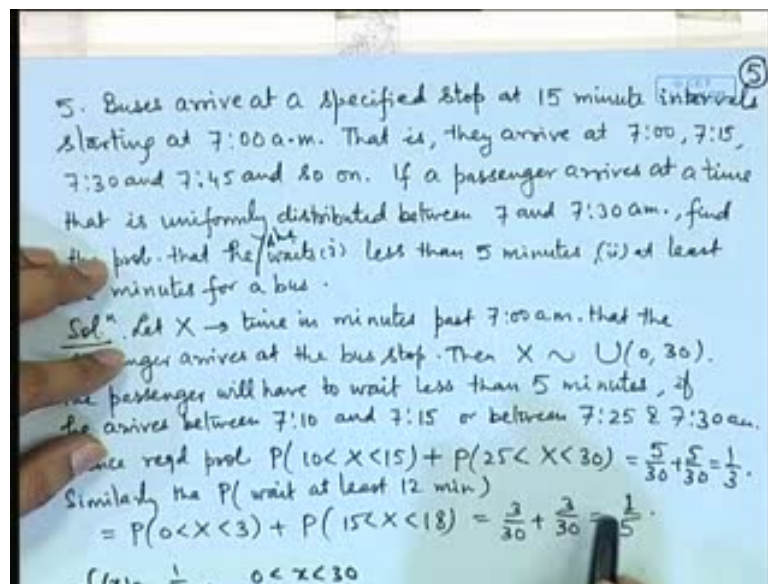 5
5. Buses arrive at a specified stop at 15 minute intervals
starting at 7:00 a.m. That is, they arrive at 7:00, 7:15,
7:30 and 7:45 and so on. If a passenger arrives at a time
that is uniformly distributed between 7 and 7:30 a.m., find
prob. that he/she waits (i) less than 5 minutes, (ii) at least
minutes for a bus.
Solⁿ. Let X → time in minutes past 7:00 a.m. that the
nger arrives at the bus stop. Then X ~ U(0, 30).
passenger will have to wait less than 5 minutes, if
he arrives between 7:10 and 7:15 or between 7:25 & 7:30 am.
nce reqd prob P(10<X<15) + P(25<X<30) = 5/30 + 5/30 = 1/3.
Similarly the P(wait at least 12 min)
= P(0<X<3) + P(15<X<18) = 3/30 + 3/30 = 1/5.
0<x<30